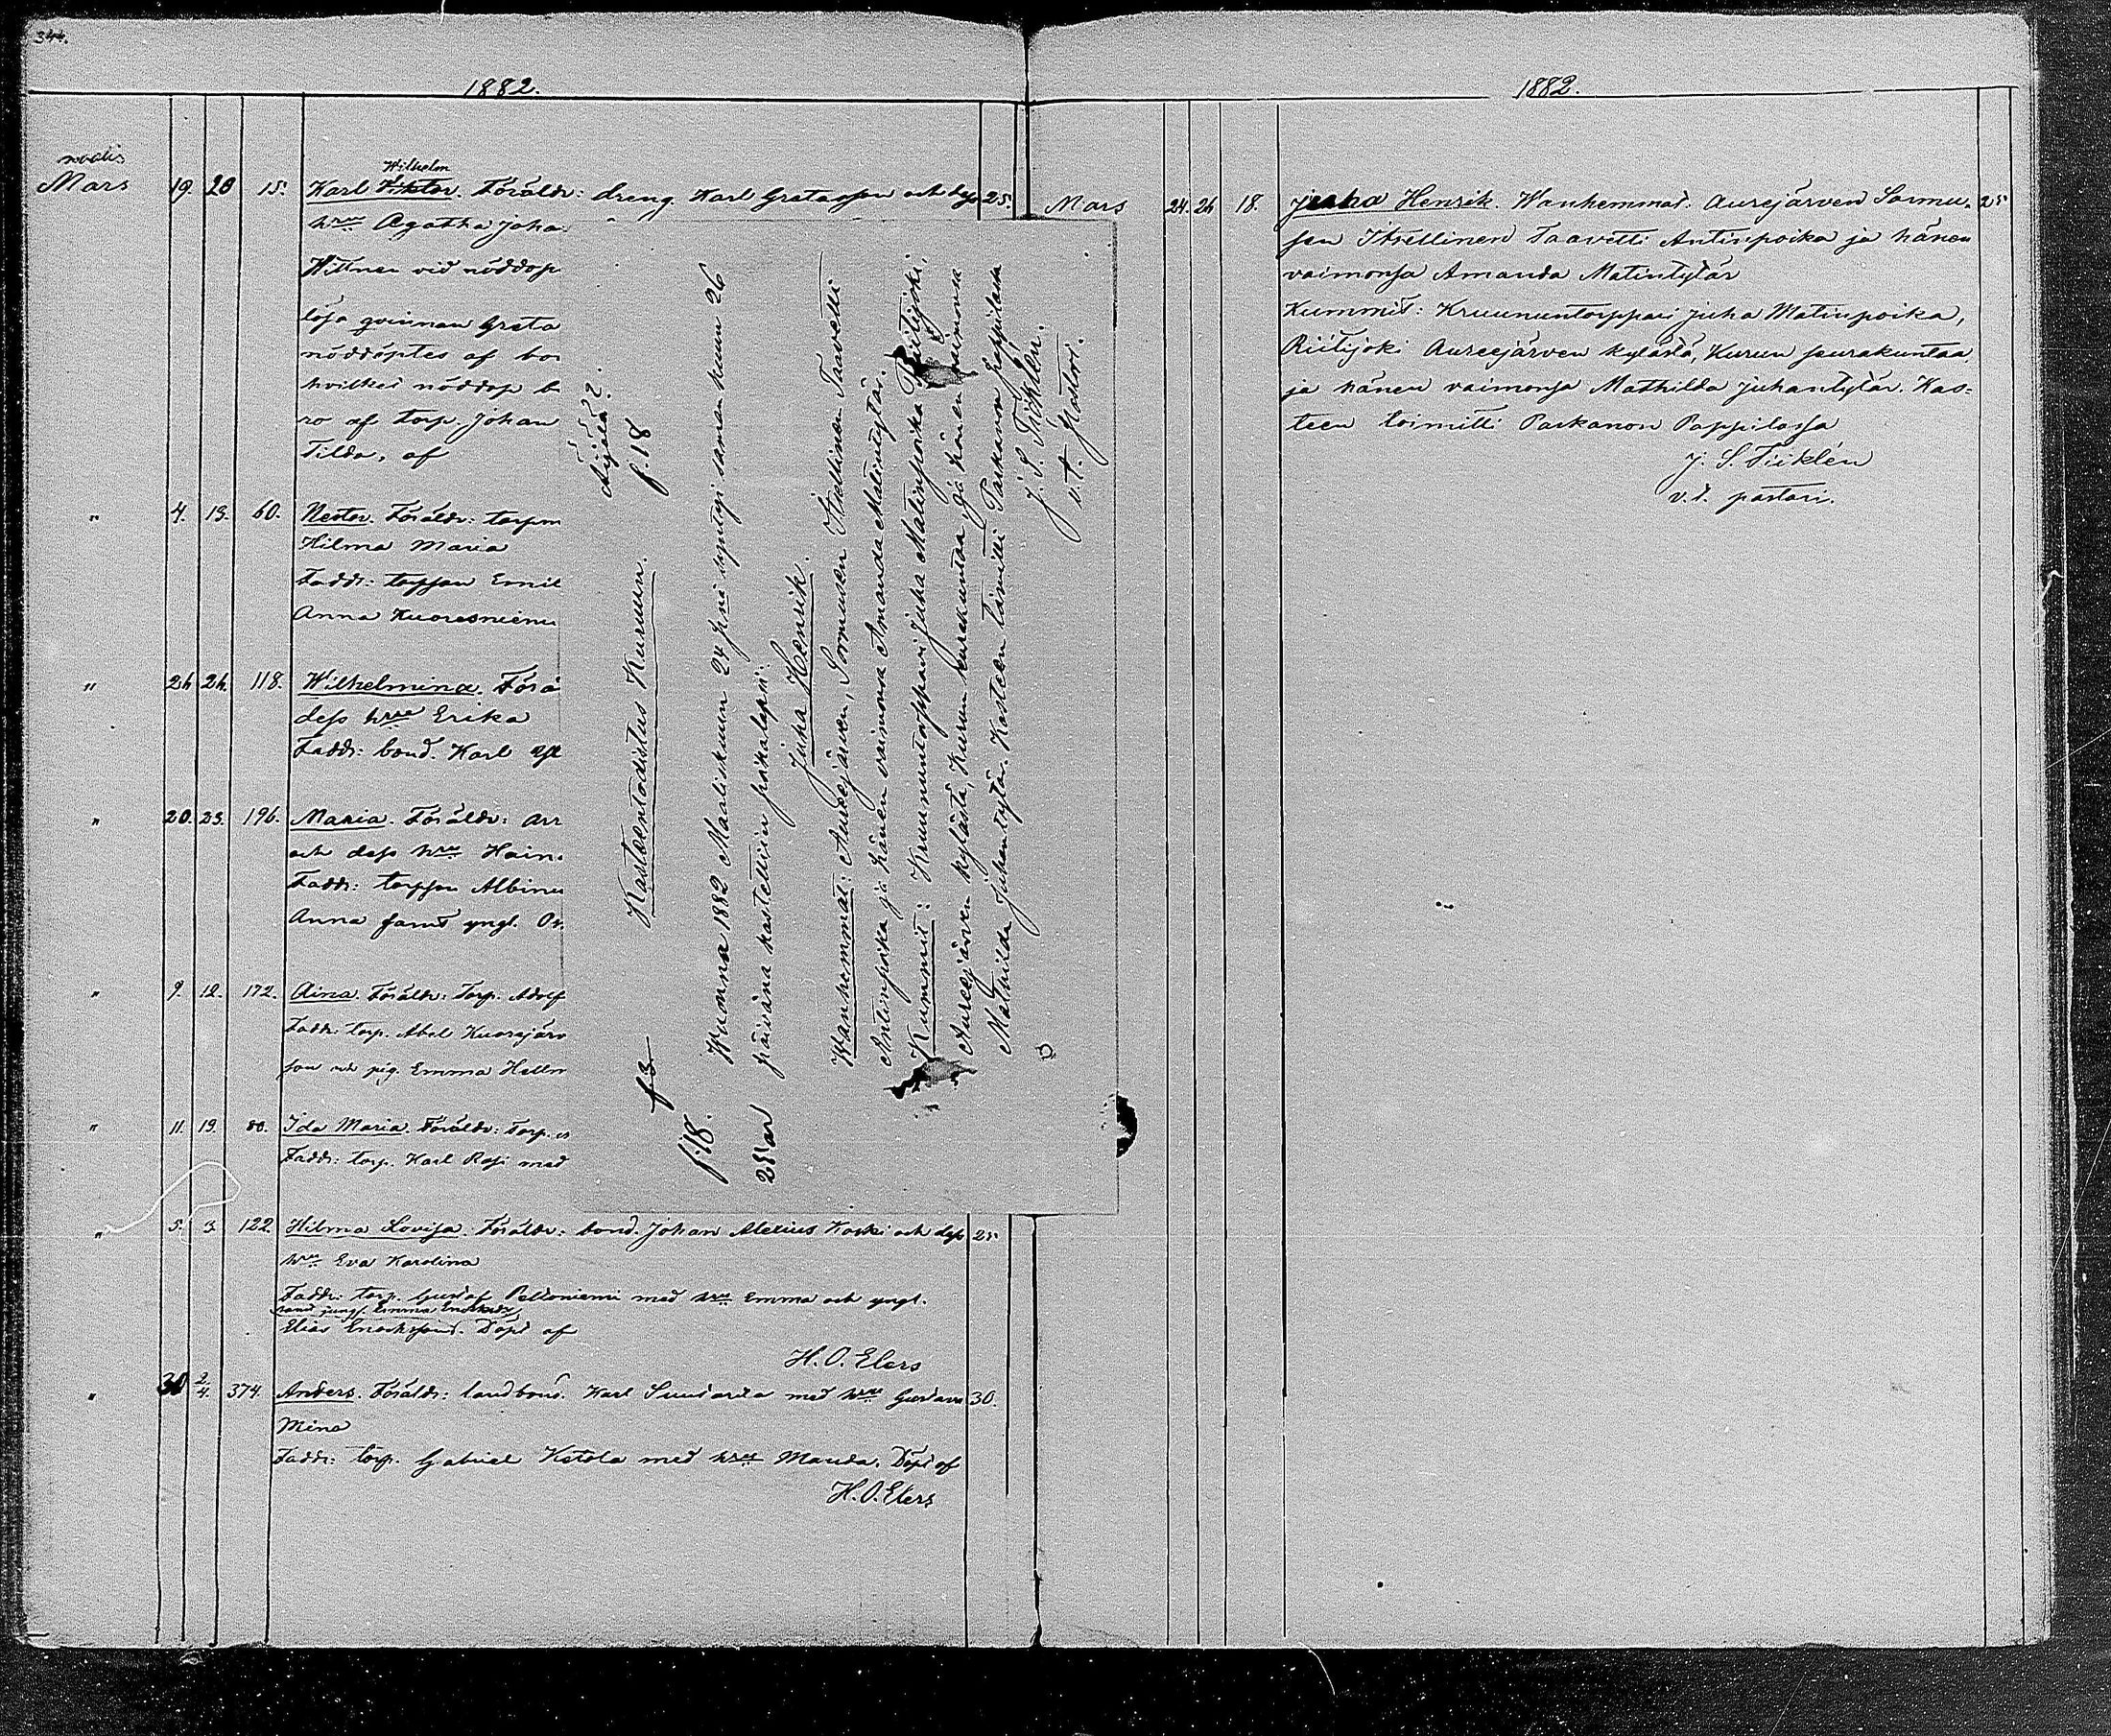 344.
1882.
Mars 19. 20 15. Karl Wiktor. Föräldr: dreng Karl Gretasson och dess 25.
Wilhelm
hru Agatha Joha
Wittnen vid nöddop
lösa qvinnan Greta
nöddöptes af
hvilket nöddop b
ro af torp. Johan
Tilda, af
" 4. 13. 60. Nestor. Föräldr: torpm
Hilma Maria
Faddr: torpson Emil
Anna Kuoresniemi
" 24 24. 118. Wilhelmina. Förä
dess hru Erika
Faddr: bond. Karl
" 20. 23. 196. Maria. Föräldr: Arr
och dess hru
Faddr: torpson Albinu
Anna samt yngl. O
" 9. 12. 172. Aina. Föräldr: Torp. Adolf
Faddr: torp. Abel Kuorejärv
son och pig. Emma Hellm
" 11. 19. 80. Ida Maria. Föräldr: Torp.
Faddr: torp. Karl Rosi med
" 5. 3 122. Hilma Lovisa. Föräldr: bond. Johan Alexius Koski och dess 25
hru Eva Karolina
Faddr: torp. Gustaf Peltoniemi med hru Emma och yngl.
samt jungf. Emma Enoksdr
Elias Enocksson. Döpt af
H. O. Elers
" 30 2/4. 374. Anders. Föräldr: landbond. Karl med hru Gustava 30.
Mina
Faddr: torp. Gabriel Ketola med hru Manda. Döpt af
H. O. Elers
Äijälä 2.
f. 18
Kasteentodistus Kuruun.
f 3
f. 18.
Wuonna 1882 Maaliskuun 24 p:nä syntyi saman kuun 26
25 ar
päivänä kastettiin poikalapsi:
Juha Henrik.
Wanhemmat: Aurejärven, Sormusen Itsellinen Taavetti
Antinpoika ja hänen vaimonsa Amanda Matintytär.
Kummit: Kruununtorppari Juha Matinpoika Riitijoki,
Aureejärven kylästä, Kurun seurakuntaa, ja hänen vaimonsa
Mathilda Juhantytär. Kasteen toimitti Parkanon Pappilassa
J. S. Tiiklén.
v. t. Pastori.
1882.
Mars 24. 26 18. Juha Henrik. Wanhemmat. Aurejärven Sormu- 25
sen Itsellinen Taavetti Antinpoika ja hänen
vaimonsa Amanda Matintytär
Kummit: Kruununtorppari Juha Matinpoika,
Riitijoki Aureejärven kylästä, Kurun seurakuntaa,
ja hänen vaimonsa Mathilda Juhantytär. Kas-
teen toimitti Parkanon Pappilassa
J. S. Tiiklén
v. t. pastori.